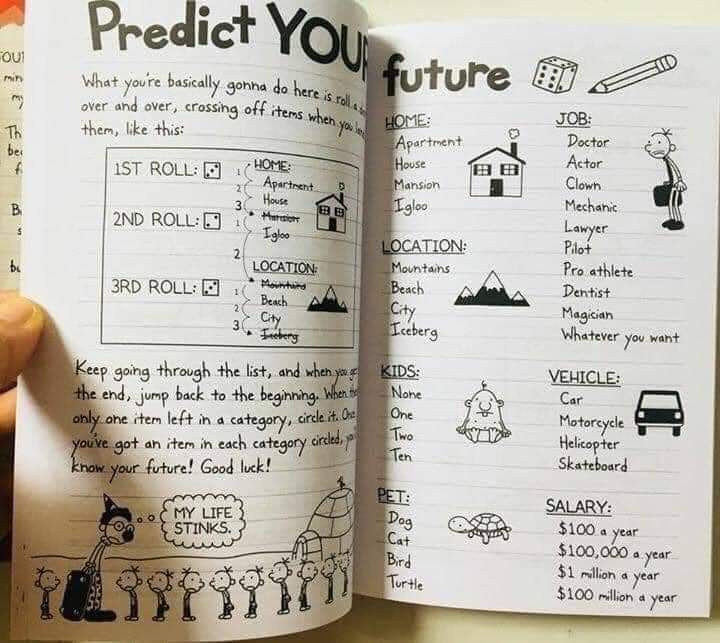 Predict YOUR future
What you're basically gonna do here is roll a
over and over, crossing off items when you land
them, like this:
1ST ROLL:
2ND ROLL:
3RD ROLL:
1
2
3
1
2
1
2
3
HOME:
Apartment
House
Mansion
Igloo
LOCATION:
Mountains
Beach
City
Iceberg
Keep going through the list, and when you get
the end, jump back to the beginning. When
only one item left in a category, circle it. Once
you've got an item in each category circled, you'll
know your future! Good luck!
MY LIFE
STINKS.
HOME:
Apartment
House
Mansion
Igloo
LOCATION:
Mountains
Beach
City
Iceberg
KIDS:
None
One
Two
Ten
PET:
Dog
Cat
Bird
Turtle
JOB:
Doctor
Actor
Clown
Mechanic
Lawyer
Pilot
Pro athlete
Dentist
Magician
Whatever you want
VEHICLE:
Car
Motorcycle
Helicopter
Skateboard
SALARY:
$100 a year
$100,000 a year
$1 million a year
$100 million a year